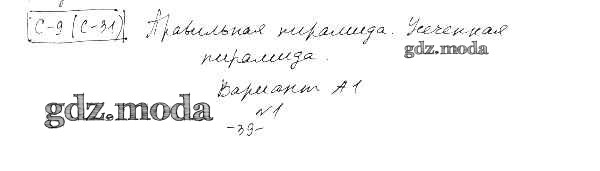 С-9 (С-31) Правильная пирамида. Усеченная
gdz.moda
пирамида.
Вариант А1
gdz.moda
№1
-39-